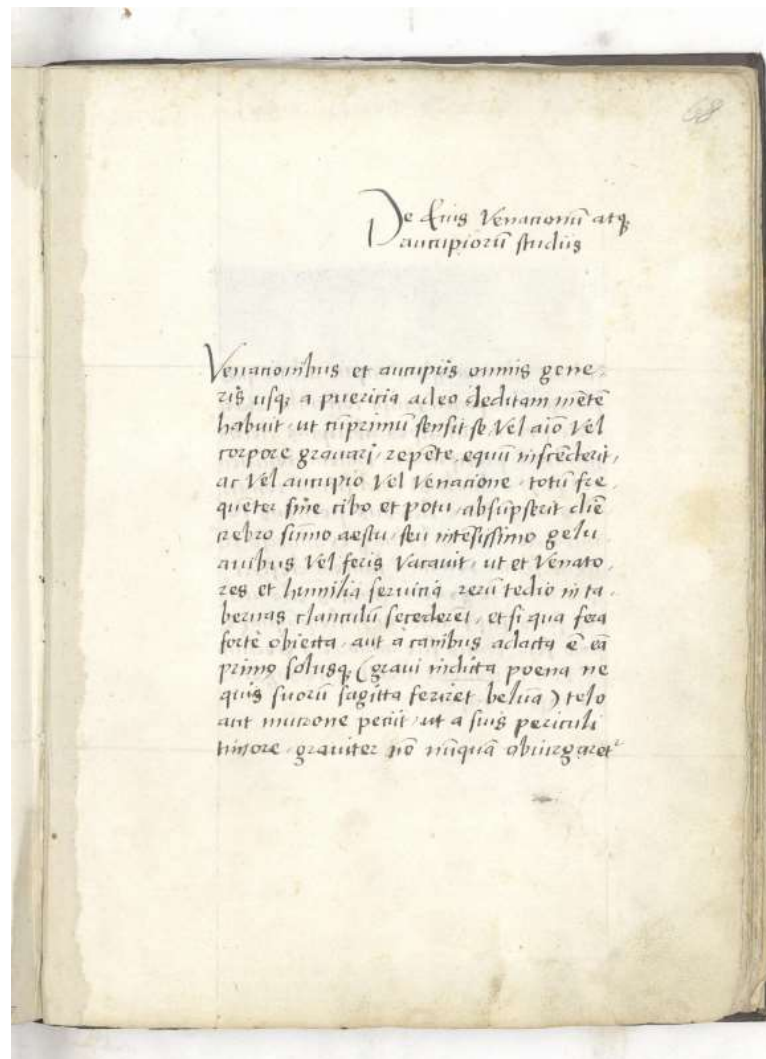 68
De Eius Venacionū atq;
aucupiorū studiis
Venacionibus et aucupiis omnis gene-
ris usq; a puericia adeo deditam mētē
habuit, ut cūprimū sensit se, Vel aīo Vel
corpore gravari, repēte equū inscēderit,
ac Vel aucupio Vel Venacione, totū fre-
quēter sine cibo et potu, absūpserit diē
crebro sūmo aestu, seu intēsissimo gelu
avibus Vel feris Vacavit, ut et Venato-
res et humilia servicia, rerū tedio in ta-
bernas clanculū secederēt, et si qua fera
fortè obiecta, aut à canibus adacta ē eā
primus solusq; (gravi indicta poena ne
quis suorū sagitta feriret beluā) telo
aut mucrone petiit, ut a suis periculi
timore, graviter nō nūquā obiurgaret